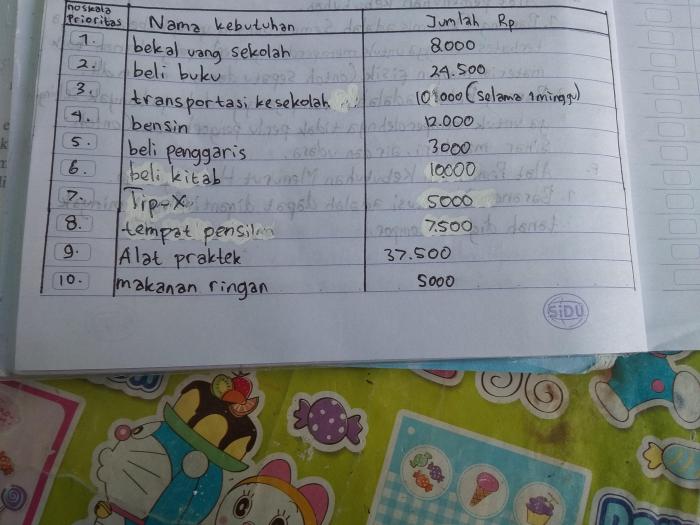 no skala Prioritas | Nama kebutuhan | Jumlah Rp
1. | bekal uang sekolah | 8000
2. | beli buku | 24.500
3. | transportasi kesekolah | (selama 1 minggu)
4. | bensin | 12.000
5. | beli penggaris | 3000
6. | beli kitab | 10.000
7. | Tip-X | 5000
8. | tempat pensil | 7.500
9. | Alat praktek | 37.500
10. | makanan ringan | 5000
SiDU